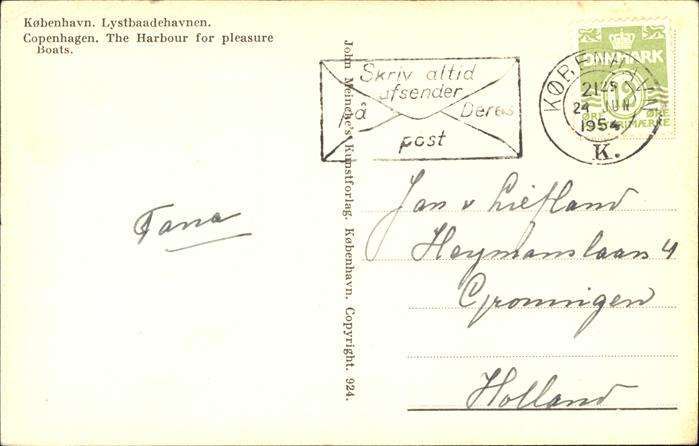 København. Lystbaadehavnen.
Copenhagen. The Harbour for pleasure
Boats.
Fana
John Meincke's Kunstforlag. København. Copyright. 924.
Skriv altid
afsender
på Deres
post
KØBENHAVN
21
24 JUN
1954
K.
DANMARK
ØRE ØRE
Jan v Liefland
Heymanslaan 4
Groningen
Holland